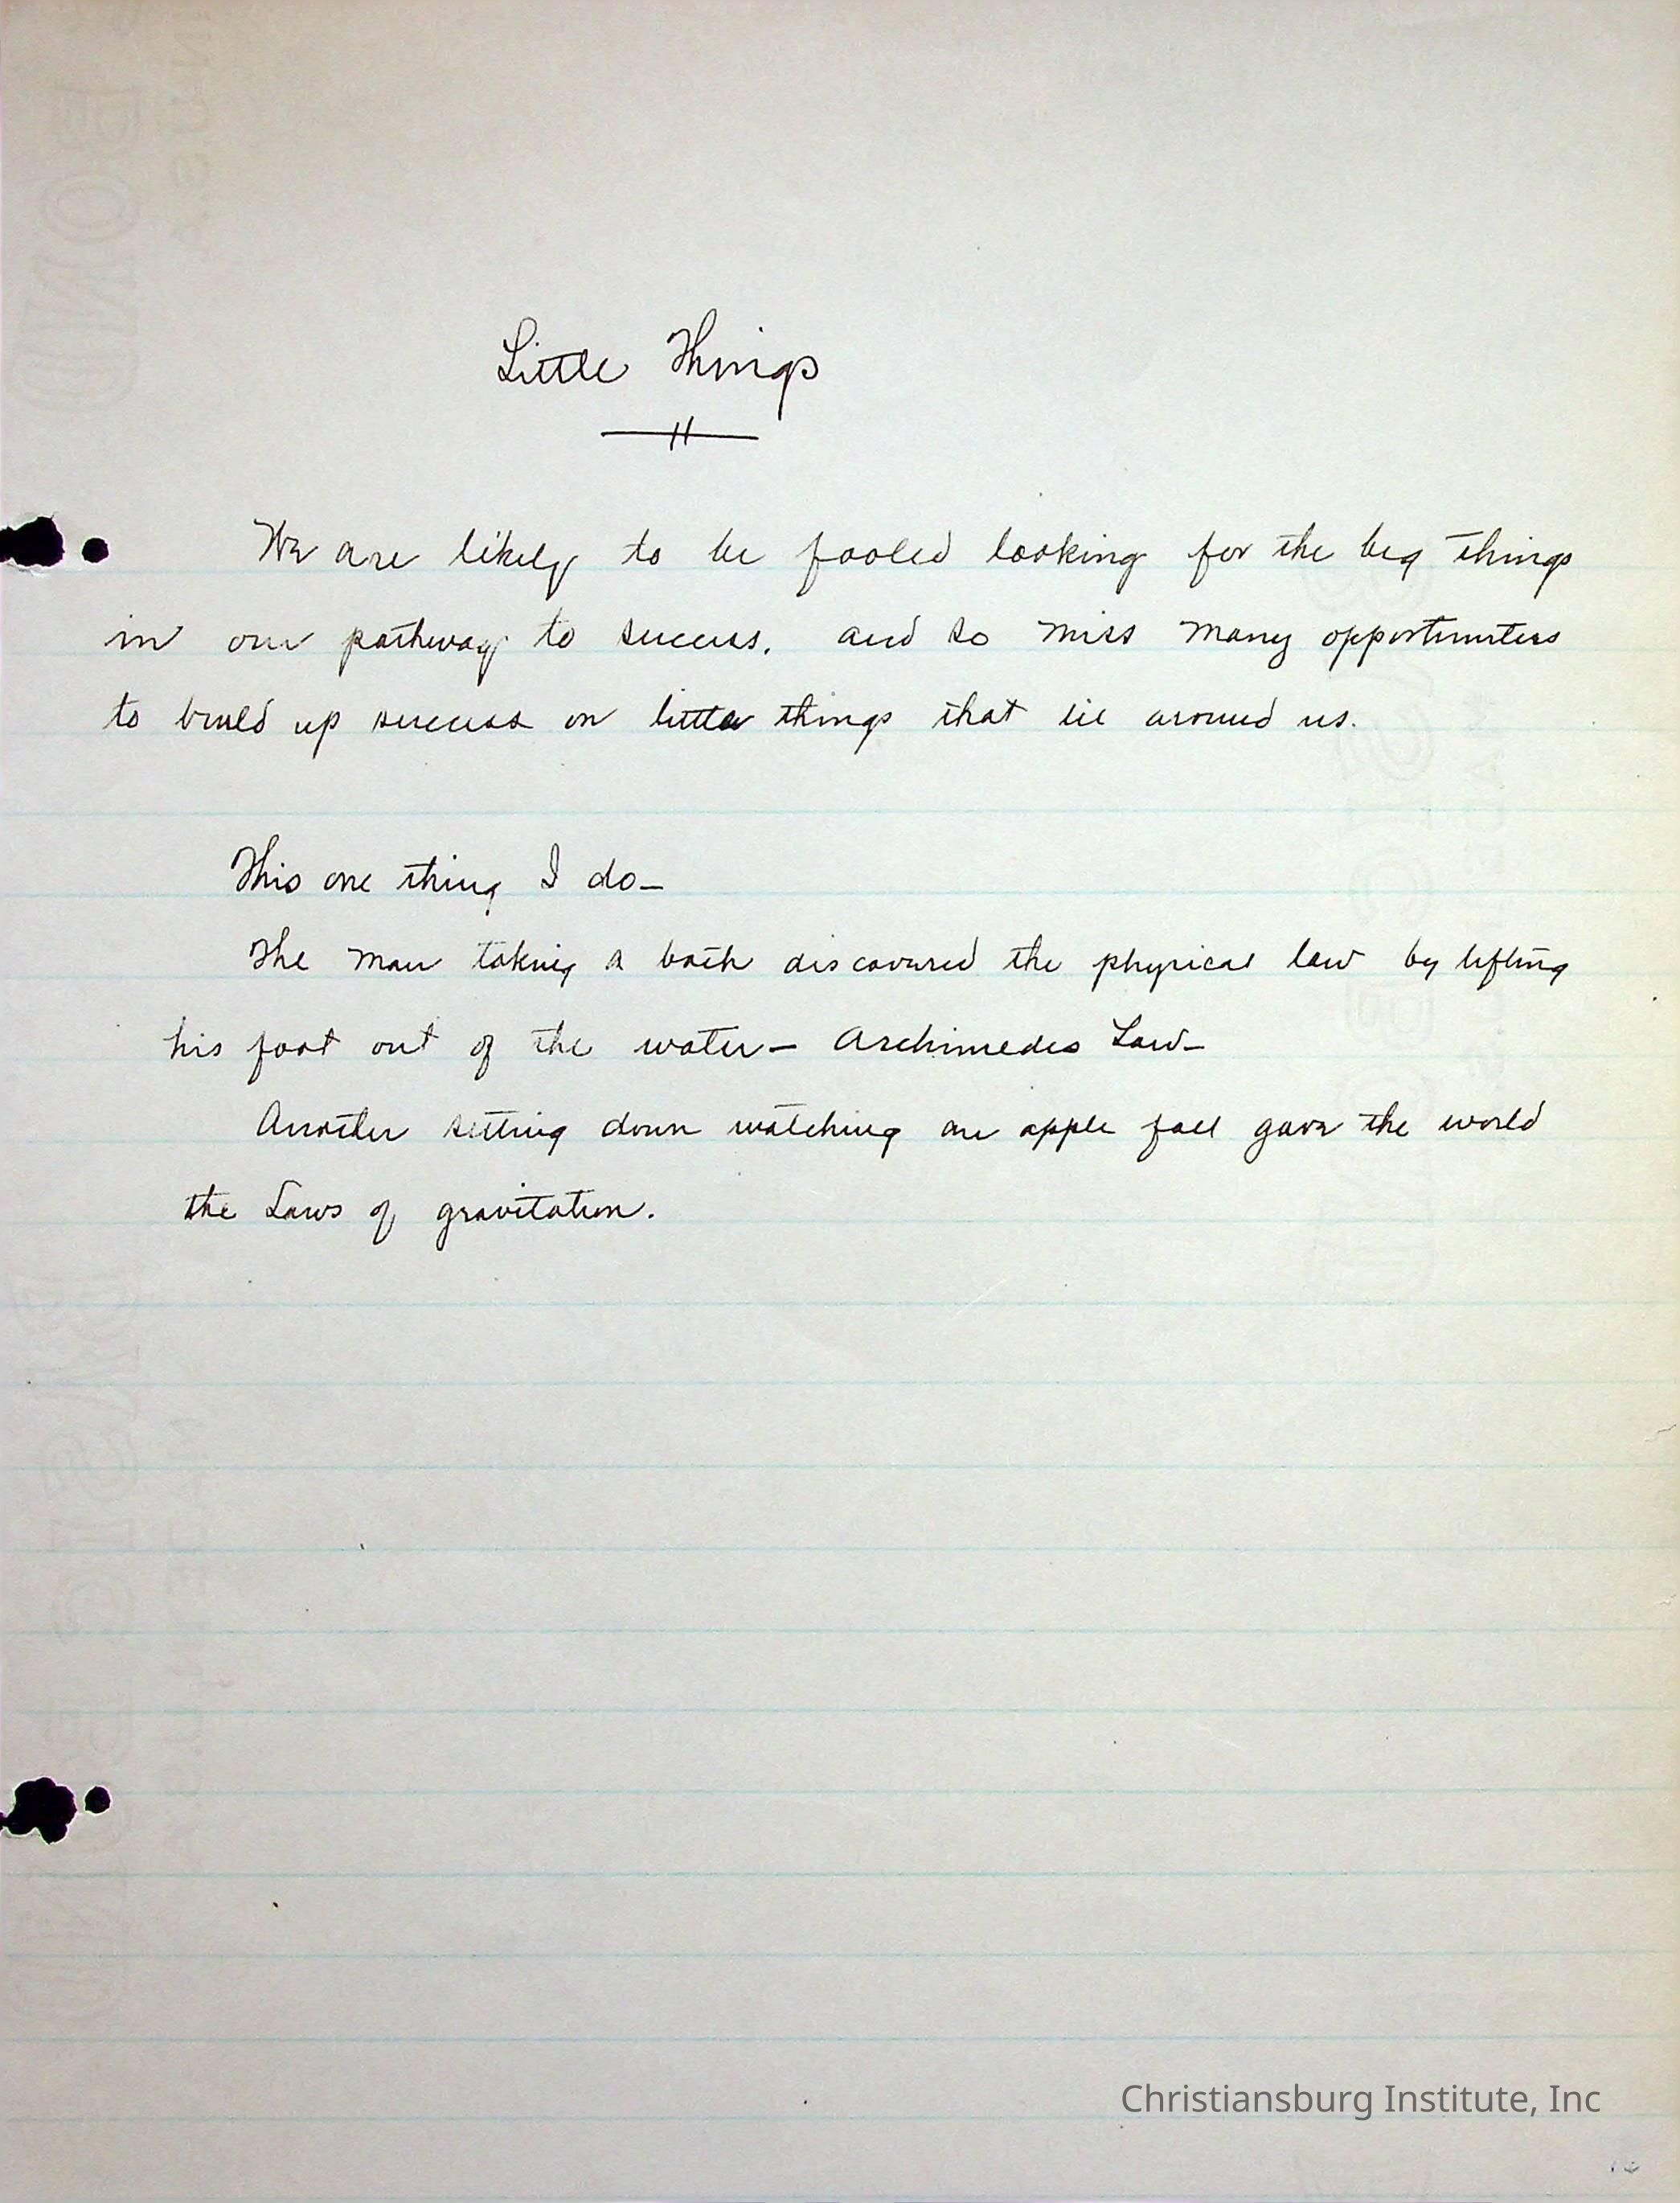 Little Things
We are likely to be fooled looking for the big things
in our pathway to success, and so miss many opportunities
to build up success on little things that lie around us.
This one thing I do—
The man taking a bath discovered the physical law by lifting
his foot out of the water— Archimedes Law—
Another sitting down watching an apple fall gave the world
the Laws of gravitation.
Christiansburg Institute, Inc